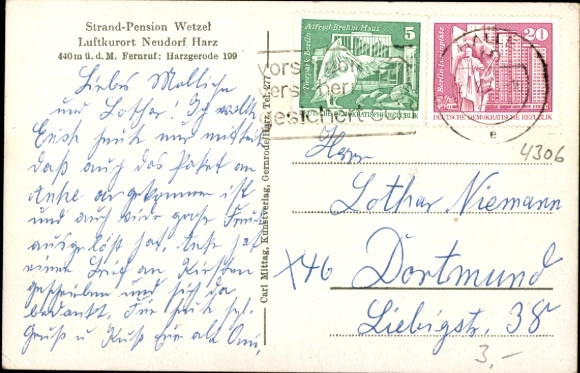 Strand-Pension Wetzel
Luftkurort Neudorf Harz
440 m ü. d. M. Fernruf: Harzgerode 199
Liebes
und Lothar! Ich wollte
Euch heute nur
daß auch das Paket an
Anke angekommen ist
und auch viele große
ausgelöst hat. Anke hat
einen Brief an
geschrieben und sich da
bedankt. Für heute
Gruß u Kuß Eure alte Omi,
Carl Mittag, Kunstverlag, Gernrode/Harz, Tel. 277
Tierpark Berlin
Alfred-Brehm-Haus
5
DEUTSCHE DEMOKRATISCHE REPUBLIK
Berlin Leninplatz
20
DEUTSCHE DEMOKRATISCHE REPUBLIK
HALLE
e
4306
Herrn
Lothar Niemann
X46 Dortmund
Liebigstr. 38
3,-